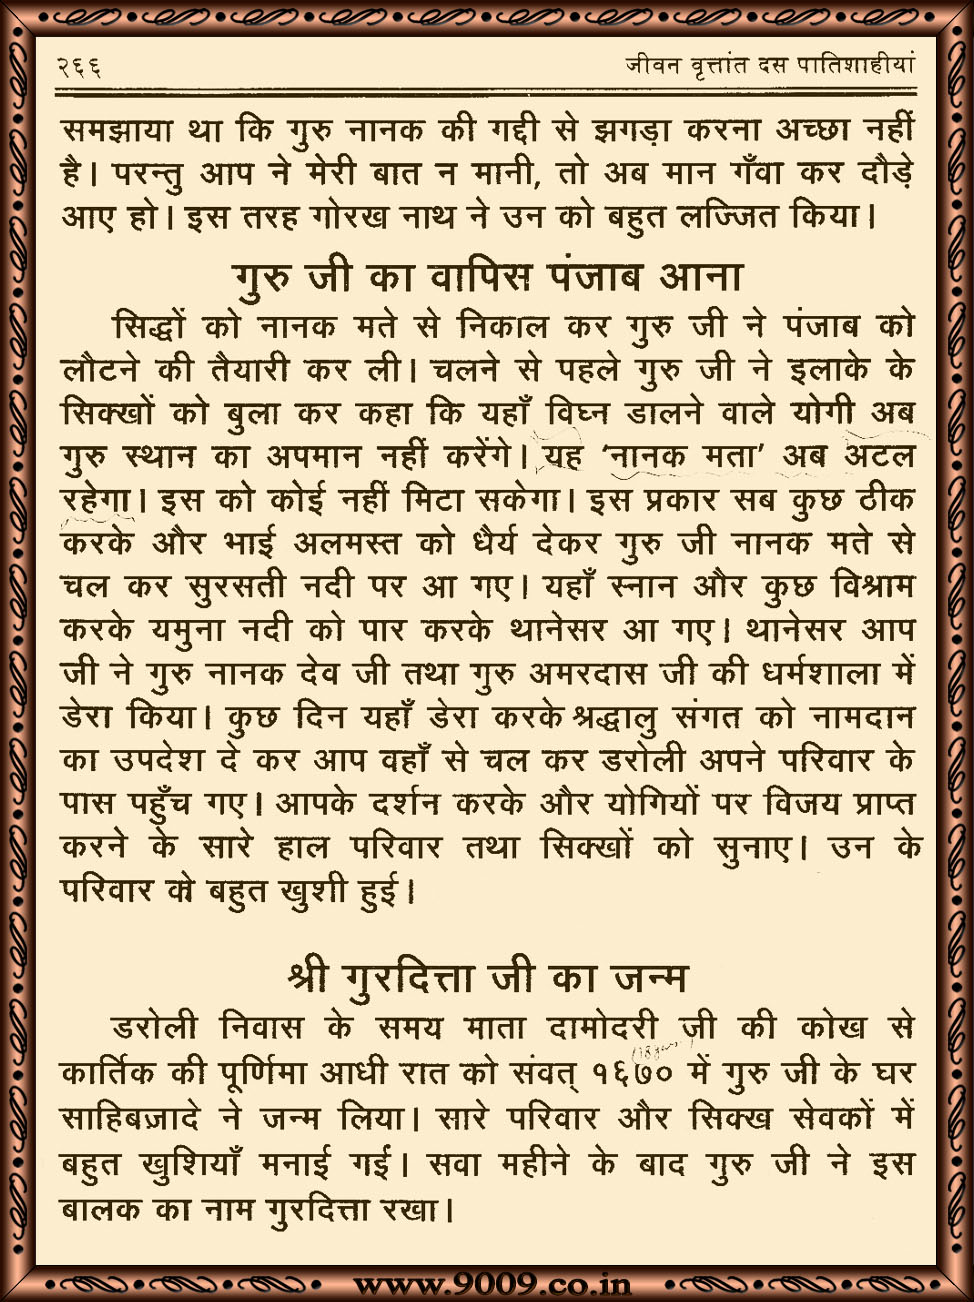 २६६ जीवन वृत्तांत दस पातिशाहीयां
समझाया था कि गुरु नानक की गद्दी से झगड़ा करना अच्छा नहीं
है। परन्तु आप ने मेरी बात न मानी, तो अब मान गँवा कर दौड़े
आए हो। इस तरह गोरख नाथ ने उन को बहुत लज्जित किया।
गुरु जी का वापिस पंजाब आना
सिद्धों को नानक मते से निकाल कर गुरु जी ने पंजाब को
लौटने की तैयारी कर ली। चलने से पहले गुरु जी ने इलाके के
सिक्खों को बुला कर कहा कि यहाँ विघ्न डालने वाले योगी अब
गुरु स्थान का अपमान नहीं करेंगे। यह 'नानक मता' अब अटल
रहेगा। इस को कोई नहीं मिटा सकेगा। इस प्रकार सब कुछ ठीक
करके और भाई अलमस्त को धैर्य देकर गुरु जी नानक मते से
चल कर सुरसती नदी पर आ गए। यहाँ स्नान और कुछ विश्राम
करके यमुना नदी को पार करके थानेसर आ गए। थानेसर आप
जी ने गुरु नानक देव जी तथा गुरु अमरदास जी की धर्मशाला में
डेरा किया। कुछ दिन यहाँ डेरा करके श्रद्धालु संगत को नामदान
का उपदेश दे कर आप वहाँ से चल कर डरोली अपने परिवार के
पास पहुँच गए। आपके दर्शन करके और योगियों पर विजय प्राप्त
करने के सारे हाल परिवार तथा सिक्खों को सुनाए। उन के
परिवार को बहुत खुशी हुई।
श्री गुरदित्ता जी का जन्म
डरोली निवास के समय माता दामोदरी जी की कोख से
कार्तिक की पूर्णिमा आधी रात को संवत् १६७० में गुरु जी के घर
साहिबज़ादे ने जन्म लिया। सारे परिवार और सिक्ख सेवकों में
बहुत खुशियाँ मनाई गई। सवा महीने के बाद गुरु जी ने इस
बालक का नाम गुरदित्ता रखा।
www.9009.co.in